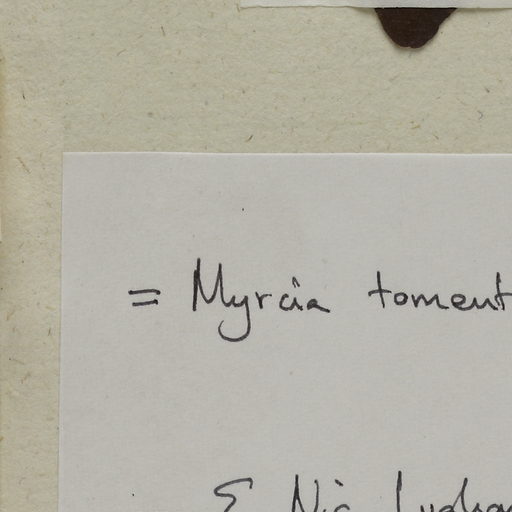 = Myrcia toment
E. Nic Lugha